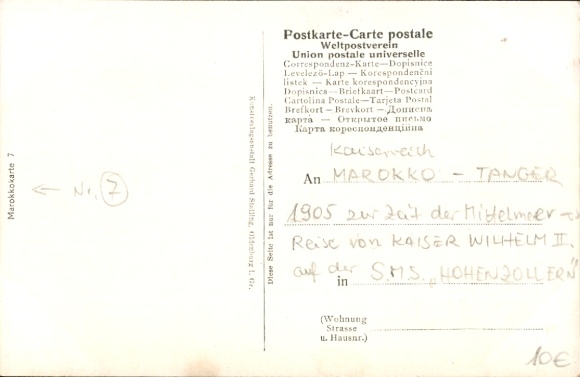 Marokkokarte 7
← Nr. 7
Kunstverlagsanstalt Gerhard Stalling, Oldenburg i. Gr.
Diese Seite ist nur für die Adresse zu benutzen.
Postkarte-Carte postale
Weltpostverein
Union postale universelle
Correspondenz-Karte—Dopisnice
Levelező-Lap — Korespondenční
listek — Karte korespondencyjna
Dopisnica—Briefkaart—Postcard
Cartolina Postale—Tarjeta Postal
Brefkort — Brevkort — Дописна
карта — Открытое письмо
Карта кореспонденційна
Kaiserreich
An MAROKKO - TANGER
1905 zur Zeit der Mittelmeer-
Reise von KAISER WILHELM II.
auf der S.M.S. „HOHENZOLLERN"
in
(Wohnung
Strasse
u. Hausnr.)
10€